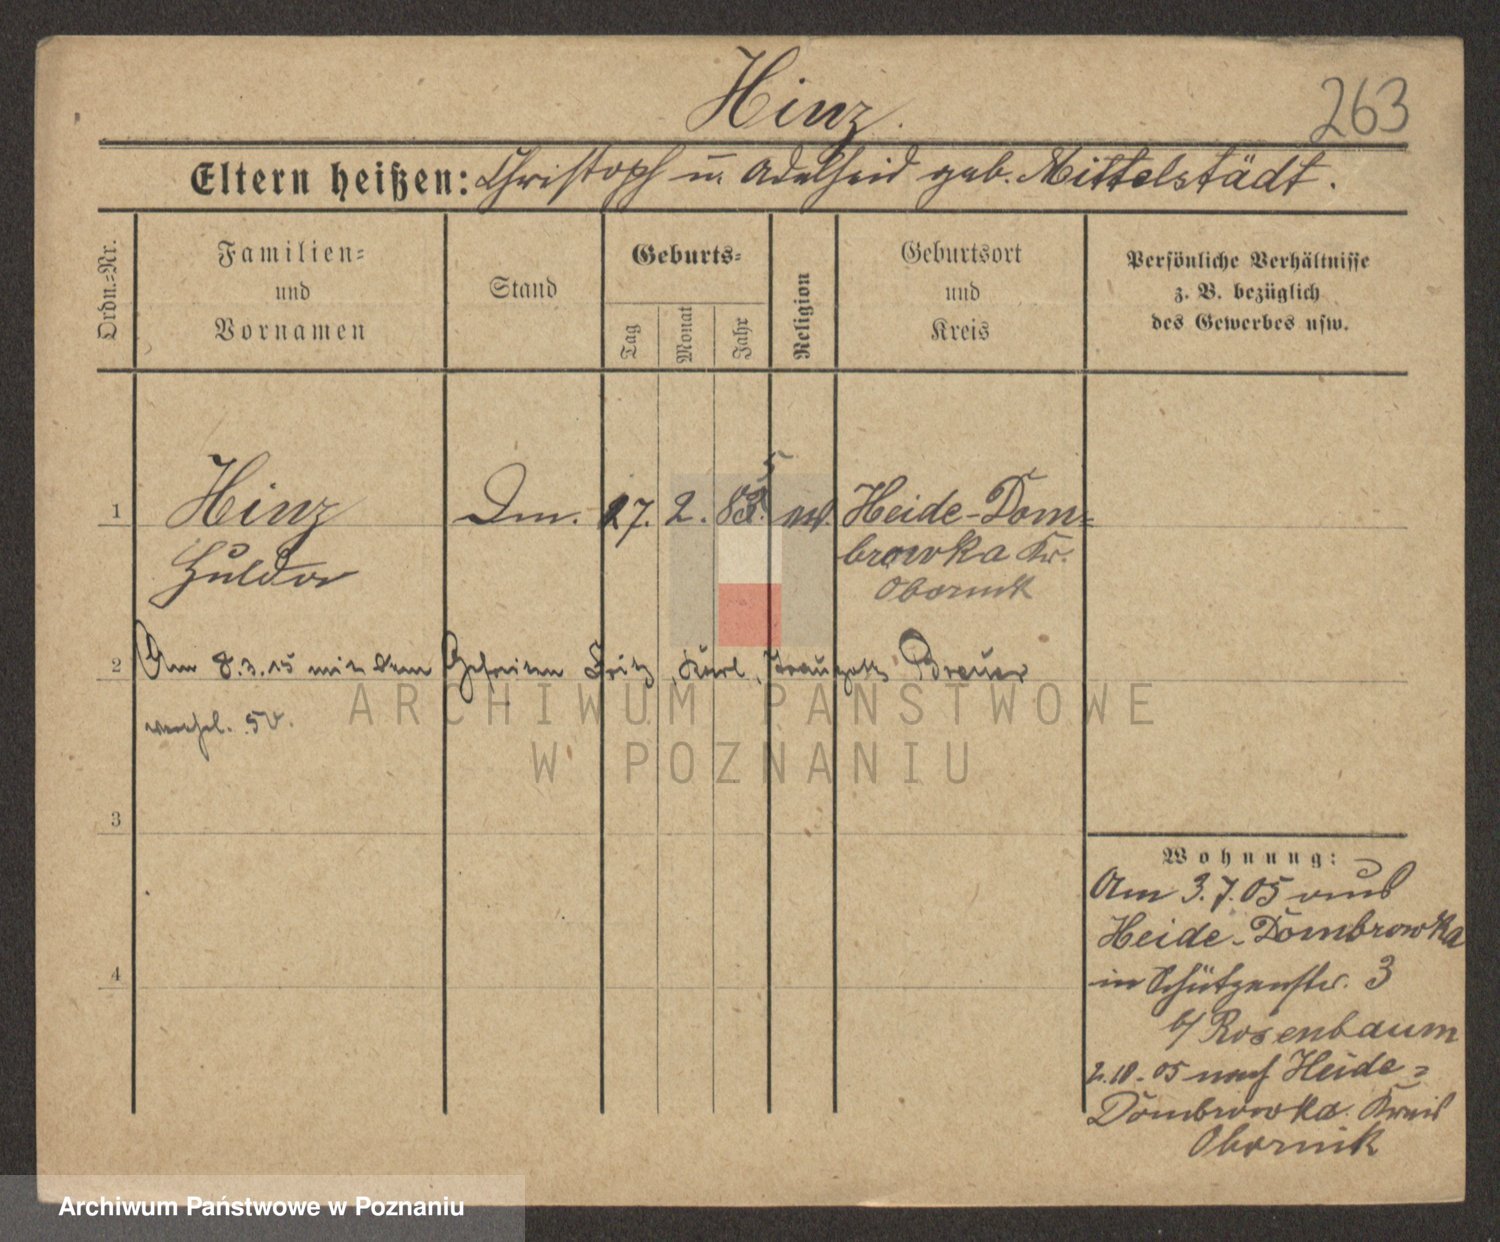 Hinz.
263
Eltern heißen: Christoph u. Adelheid geb. Mittelstädt.
Ordn.=Nr.
Familien=
und
Vornamen
Stand
Geburts=
Tag
Monat
Jahr
Religion
Geburtsort
und
Kreis
Persönliche Verhältnisse
z. B. bezüglich
des Gewerbes usw.
1
Hinz
Hulda
Dm.
27. 2. 83. 5
ev.
Heide-Dom=
browka Kr.
Obornik
2
Am 8.3.15 mit dem Gefreiten Fritz, Kurl, Traugott Breuer
verehel. 50.
3
4
Wohnung:
Am 3.7.05 aus
Heide-Dombrowka
in Schützenstr. 3
b/ Rosenbaum
2.10.05 nach Heide=
Dombrowka Kreis
Obornik
ARCHIWUM PAŃSTWOWE
W POZNANIU
Archiwum Państwowe w Poznaniu